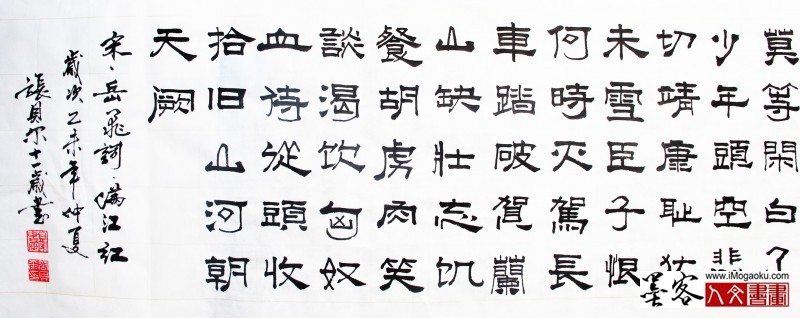 莫等閑白了
少年頭空悲
切靖康耻犹
未雪臣子恨
何時灭駕長
車踏破賀蘭
山缺壮志饥
餐胡虏肉笑
談渴饮匈奴
血待從頭收
拾旧山河朝
天厥
宋·岳飛詞·滿江紅
歲次乙未年仲夏
張貝尔十一歲書
墨客
www.iMogaoku.com
人文書畫